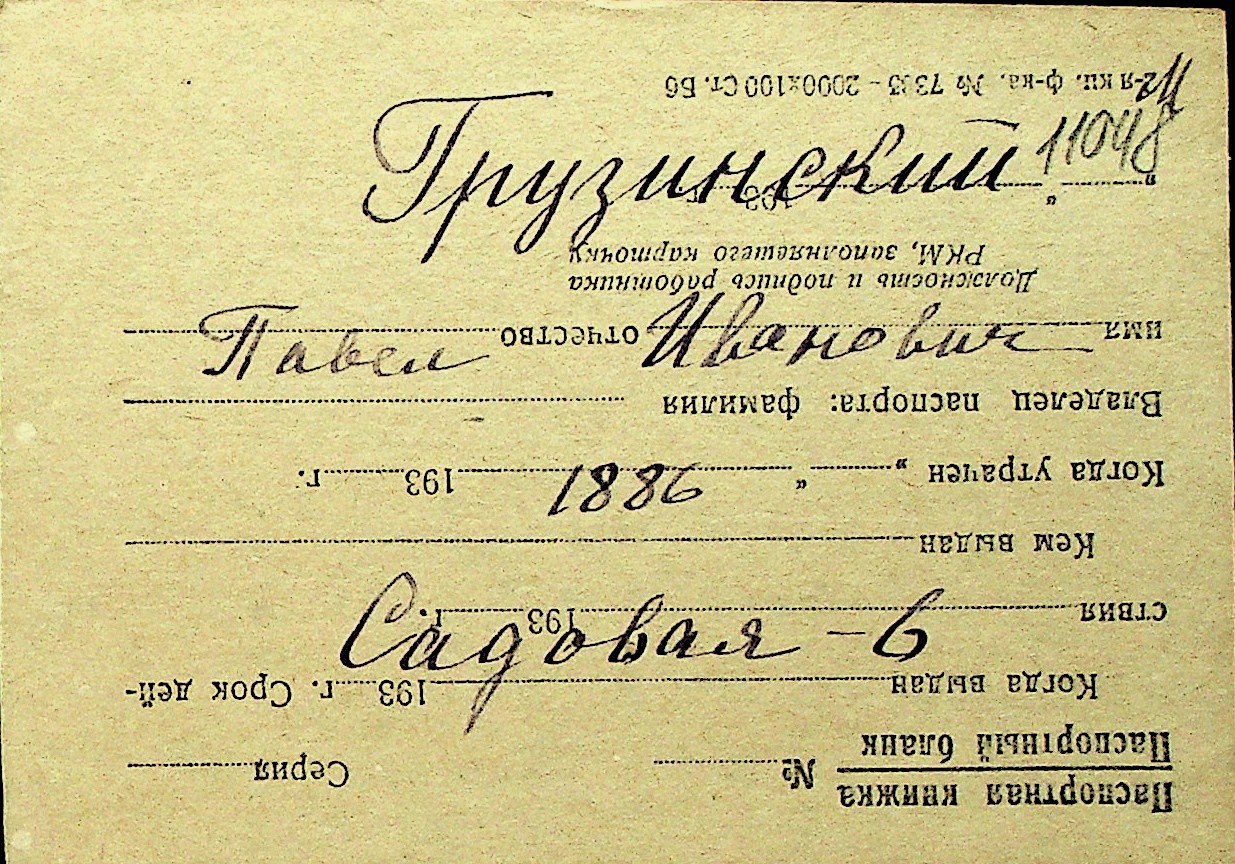 Грузинский 11048
Павел Иванович
1886
Садовая - 6
Паспортная книжка № Серия
Паспортный бланк
Когда выдан 193 г. Срок дей-
ствия 193 г.
Кем выдан
Когда утрачен „ “ 193 г.
Владелец паспорта: фамилия
имя отчество
Должность и подпись работника
РКМ, заполнявшего карточку
„ “ 193 г.
2-я кн. ф-ка. — 2000х100 Ст. Бб